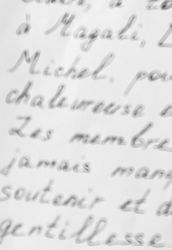 à Magali, L
Michel, pou
chaleureuse e
Les membre
jamais man
soutenir et d
gentillesse